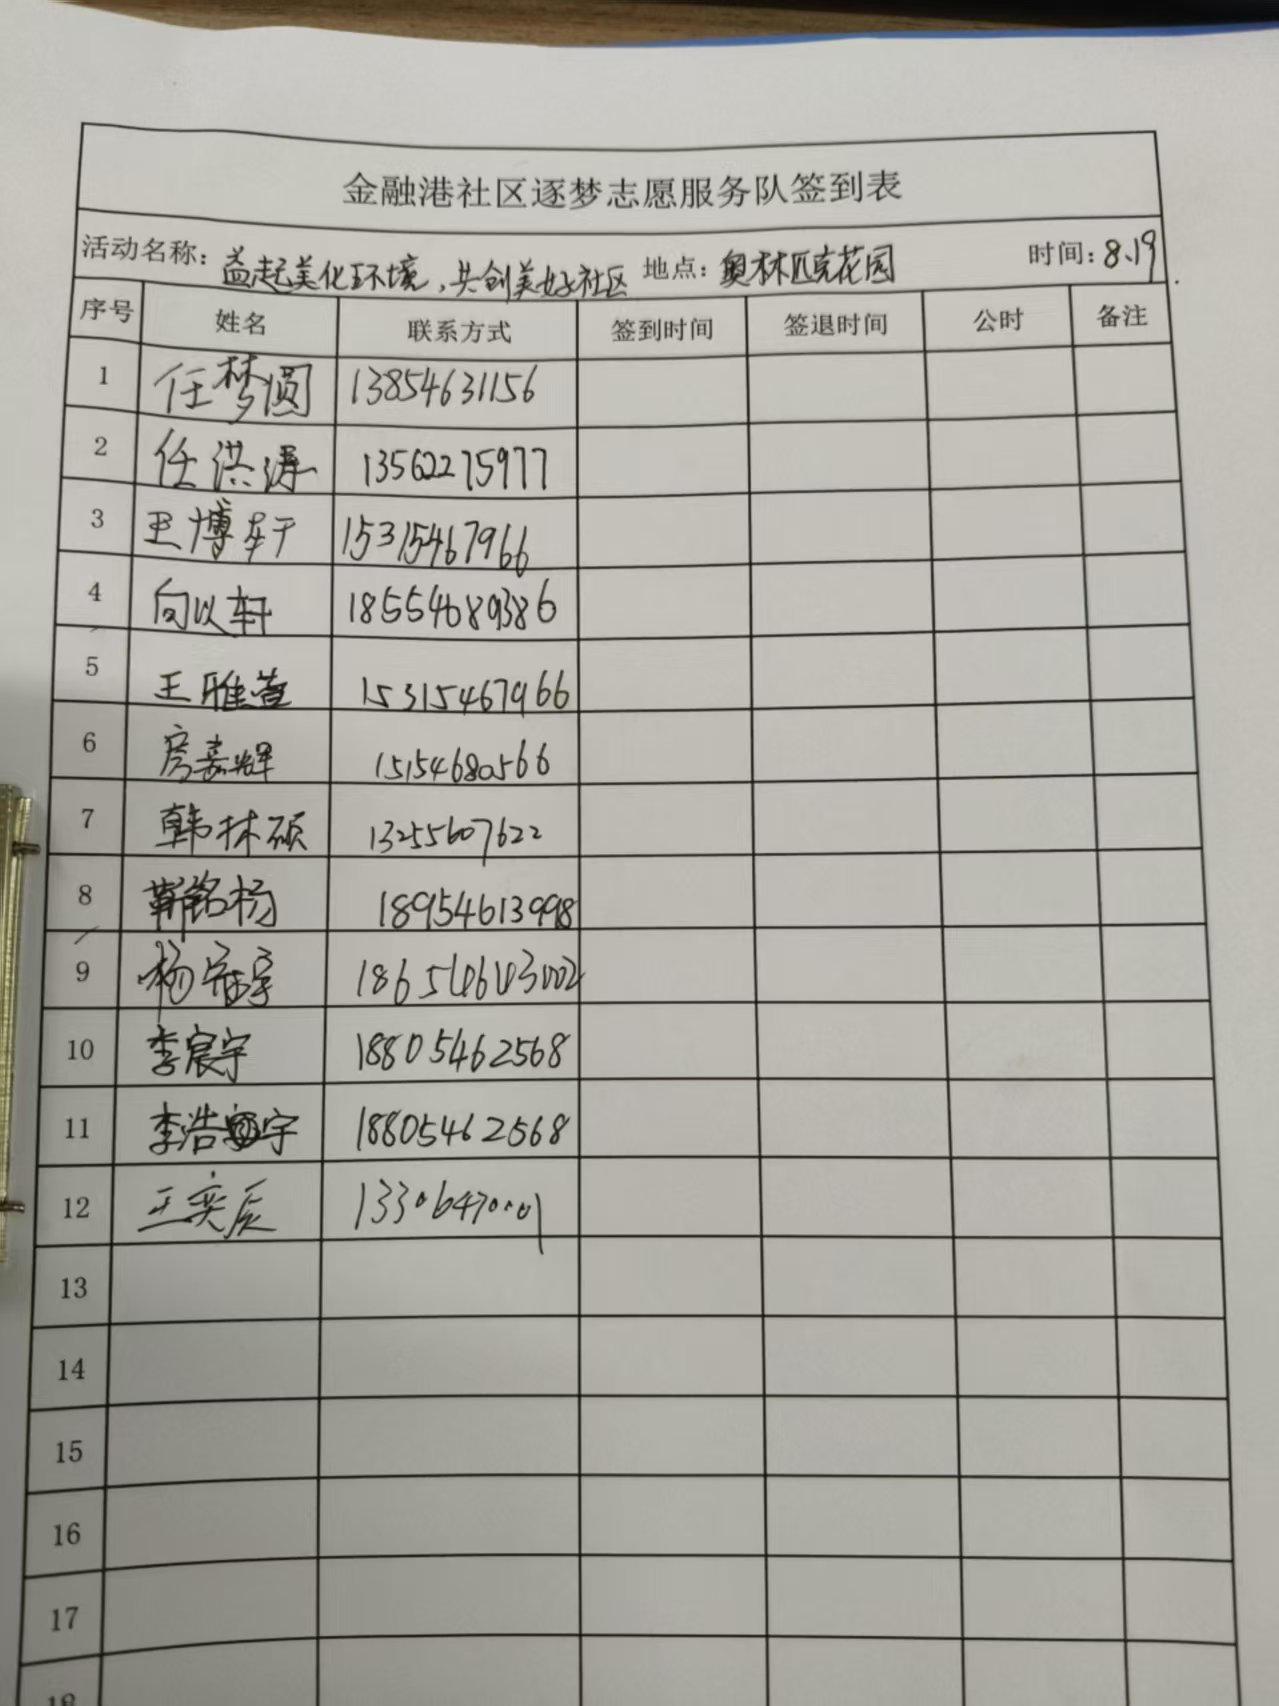 金融港社区逐梦志愿服务队签到表
活动名称：益起美化环境，共创美好社区 地点：奥林匹克花园 时间：8.19
序号 姓名 联系方式 签到时间 签退时间 公时 备注
1 任梦圆 13854631156
2 任洪涛 13562275977
3 王博轩 15315467966
4 向以轩 18554689386
5 王雅萱 15315467966
6 房嘉辉 15154680566
7 韩林硕 13255607622
8 靳铭杨 18954613998
9 杨宇 18654603002
10 李宸宇 18805462568
11 李浩宇 18805462568
12 王奕辰 13306470001
13
14
15
16
17
18